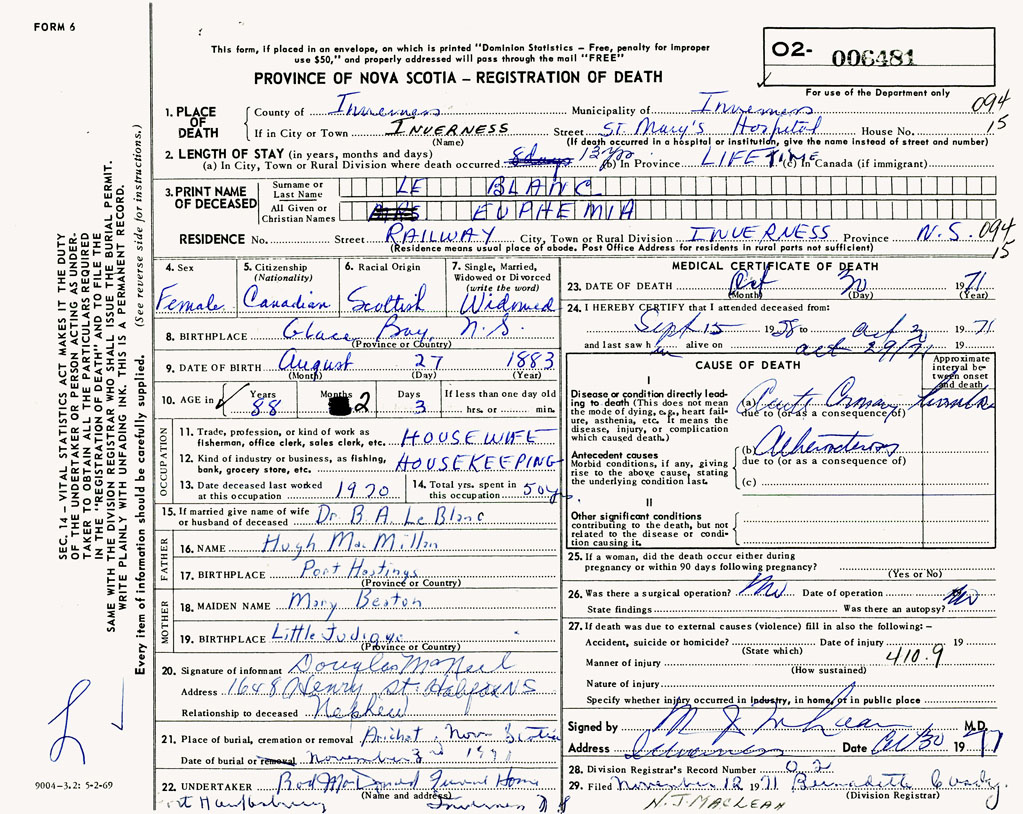 FORM 6
This form, if placed in an envelope, on which is printed "Dominion Statistics – Free, penalty for improper
use $50," and properly addressed will pass through the mail "FREE"
PROVINCE OF NOVA SCOTIA – REGISTRATION OF DEATH
O2- 006481
For use of the Department only
094
15
1. PLACE OF DEATH
County of Inverness Municipality of Inverness
If in City or Town INVERNESS Street St. Mary's Hospital House No.
(Name) (If death occurred in a hospital or institution, give the name instead of street and number)
2. LENGTH OF STAY (in years, months and days)
(a) In City, Town or Rural Division where death occurred 8 days 13 yrs (b) In Province LIFETIME (c) In Canada (if immigrant)
3. PRINT NAME OF DECEASED
Surname or Last Name LE BLANC
All Given or Christian Names MRS EUPHEMIA
RESIDENCE No. Street RAILWAY City, Town or Rural Division INVERNESS Province N.S.
094
15
(Residence means usual place of abode. Post Office Address for residents in rural parts not sufficient)
4. Sex Female
5. Citizenship (Nationality) Canadian
6. Racial Origin Scottish
7. Single, Married, Widowed or Divorced (write the word) Widowed
8. BIRTHPLACE Glace Bay, N.S.
(Province or Country)
9. DATE OF BIRTH August 27 1883
(Month) (Day) (Year)
10. AGE in Years 88 Months 2 Days 3 If less than one day old hrs. or min.
OCCUPATION
11. Trade, profession, or kind of work as fisherman, office clerk, sales clerk, etc. HOUSEWIFE
12. Kind of industry or business, as fishing, bank, grocery store, etc. HOUSEKEEPING
13. Date deceased last worked at this occupation 1970
14. Total yrs. spent in this occupation 50 yrs.
15. If married give name of wife or husband of deceased Dr. B. A. Le Blanc
FATHER
16. NAME Hugh MacMillan
17. BIRTHPLACE Port Hastings
(Province or Country)
MOTHER
18. MAIDEN NAME Mary Beaton
19. BIRTHPLACE Little Judique
(Province or Country)
20. Signature of informant Douglas McNeil
Address 1648 Henry St. Halifax NS
Relationship to deceased Nephew
21. Place of burial, cremation or removal Arichat, Nova Scotia
Date of burial or removal November 3rd 1971
22. UNDERTAKER Rod McDonald Funeral Home
(Name and address)
Port Hawkesbury Inverness N S
MEDICAL CERTIFICATE OF DEATH
23. DATE OF DEATH Oct 30 1971
(Month) (Day) (Year)
24. I HEREBY CERTIFY that I attended deceased from:
Sept 15 1958 to Oct 30 1971
and last saw h alive on Oct 29/71 19
CAUSE OF DEATH
Approximate interval between onset and death
I
Disease or condition directly leading to death (This does not mean the mode of dying, e.g., heart failure, asthenia, etc. It means the disease, injury, or complication which caused death.)
(a) Acute Coronary
due to (or as a consequence of)
Antecedent causes
Morbid conditions, if any, giving rise to the above cause, stating the underlying condition last.
(b)
due to (or as a consequence of)
(c)
II
Other significant conditions
contributing to the death, but not related to the disease or condition causing it.
25. If a woman, did the death occur either during
pregnancy or within 90 days following pregnancy?
(Yes or No)
26. Was there a surgical operation? No Date of operation
State findings Was there an autopsy? No
27. If death was due to external causes (violence) fill in also the following: –
Accident, suicide or homicide? Date of injury 19
(State which)
410.9
Manner of injury
(How sustained)
Nature of injury
Specify whether injury occurred in industry, in home, or in public place
Signed by M.D.
Address Inverness Date Oct 30 1971
28. Division Registrar's Record Number 02
29. Filed November 12 1971 Bernadette
(Division Registrar)
N. J. MACLEAN
SEC. 14 – VITAL STATISTICS ACT MAKES IT THE DUTY
OF THE UNDERTAKER OR PERSON ACTING AS UNDER-
TAKER TO OBTAIN ALL THE PARTICULARS REQUIRED
IN THE "REGISTRATION OF DEATH" AND TO FILE THE
SAME WITH THE DIVISION REGISTRAR WHO SHALL ISSUE THE BURIAL PERMIT.
WRITE PLAINLY WITH UNFADING INK. THIS IS A PERMANENT RECORD.
Every item of information should be carefully supplied. (See reverse side for instructions.)
9004-3.2: 5-2-69